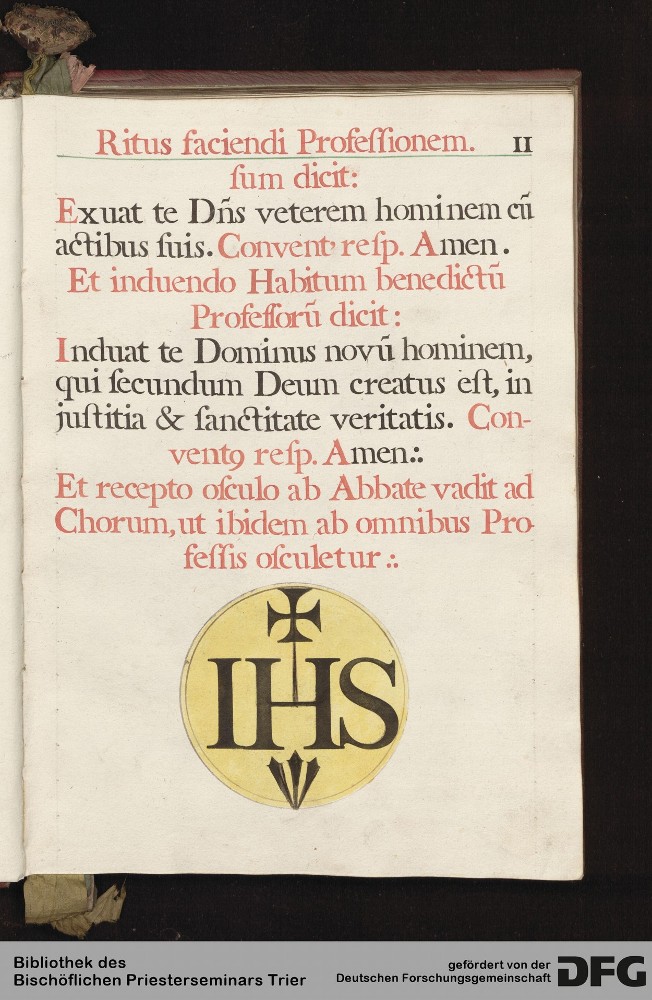 Ritus faciendi Profeſſionem. II
ſum dicit:
Exuat te Dn̄s veterem hominem cū
actibus ſuis. Convent' reſp. Amen.
Et induendo Habitum benedictū
Profeſſorū dicit:
Induat te Dominus novū hominem,
qui ſecundum Deum creatus eſt, in
juſtitia & ſanctitate veritatis. Con-
ventꝯ reſp. Amen:.
Et recepto oſculo ab Abbate vadit ad
Chorum, ut ibidem ab omnibus Pro-
feſſis oſculetur:.
IHS
Bibliothek des
Bischöflichen Priesterseminars Trier
gefördert von der
Deutschen Forschungsgemeinschaft
DFG